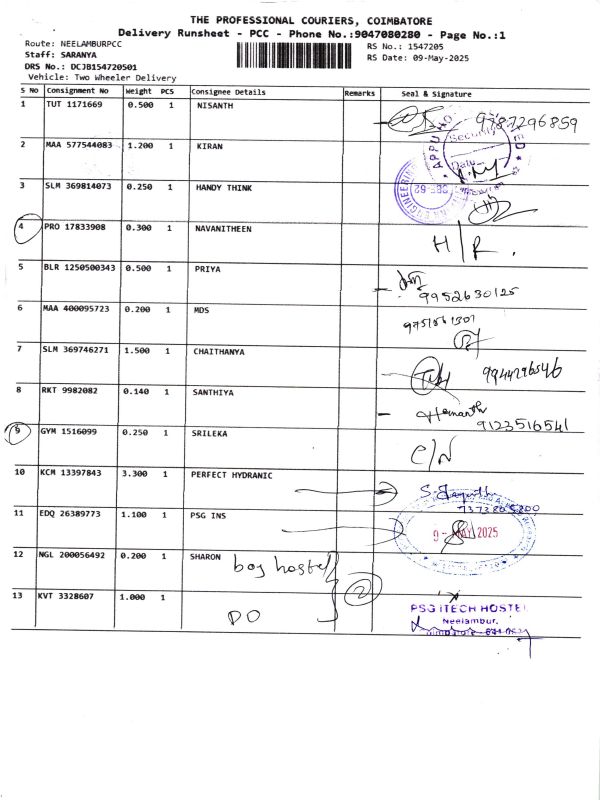 THE PROFESSIONAL COURIERS, COIMBATORE
Delivery Runsheet - PCC - Phone No.:9047080280 - Page No.:1
Route: NEELAMBURPCC
RS No.: 1547205
Staff: SARANYA
RS Date: 09-May-2025
DRS No.: DCJB154720501
Vehicle: Two Wheeler Delivery
S No Consignment No Weight PCS Consignee Details Remarks Seal & Signature
1 TUT 1171669 0.500 1 NISANTH 9787296859
2 MAA 577544083 1.200 1 KIRAN
3 SLM 369814073 0.250 1 HANDY THINK
4 PRO 17833908 0.300 1 NAVANITHEEN H/R.
5 BLR 1250500343 0.500 1 PRIYA 9952630125
6 MAA 400095723 0.200 1 MDS
7 SLM 369746271 1.500 1 CHAITHANYA 9944296546
8 RKT 9982082 0.140 1 SANTHIYA Hemanth
9123516541
9 GYM 1516099 0.250 1 SRILEKA C/N
10 KCM 13397843 3.300 1 PERFECT HYDRANIC
7373805200
11 EDQ 26389773 1.100 1 PSG INS 9- MAY 2025
12 NGL 200056492 0.200 1 SHARON boy hostel
2
13 KVT 3328607 1.000 1 DO PSG iTECH HOSTEL
Neelambur,